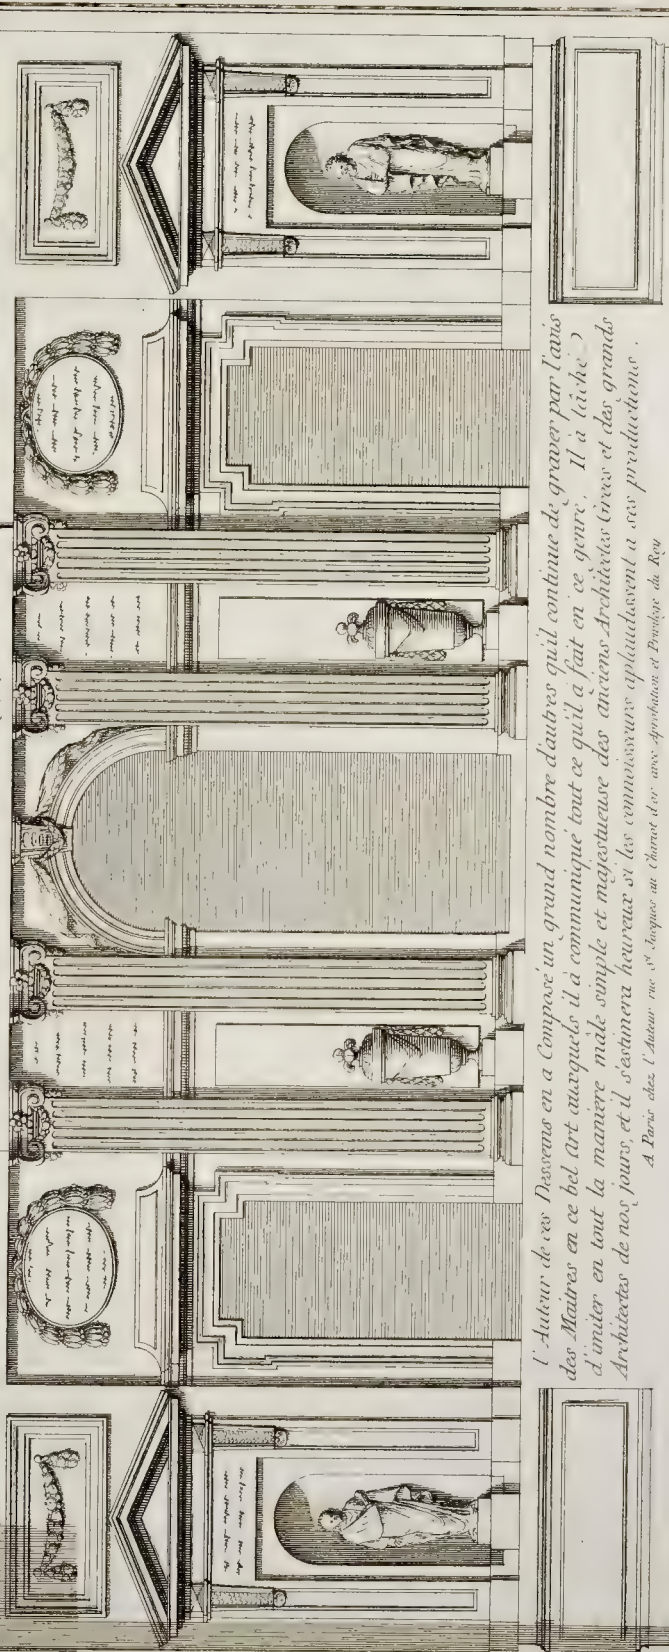 l'Auteur de ces Desseins en a Composé un grand nombre d'autres qu'il continue de graver par l'avis
des Maitres en ce bel Art auxquels il à communiqué tout ce qu'il à fait en ce genre. Il à tâché
d'imiter en tout la maniere mâle simple et majestueuse des anciens Architectes Grecs et des grands
Architectes de nos jours, et il s'estimera heureux si les connoisseurs aplaudissent a ses productions.
A Paris chez l'Auteur rue St. Jacques au Chariot d'or avec Aprobation et Privilege du Roy